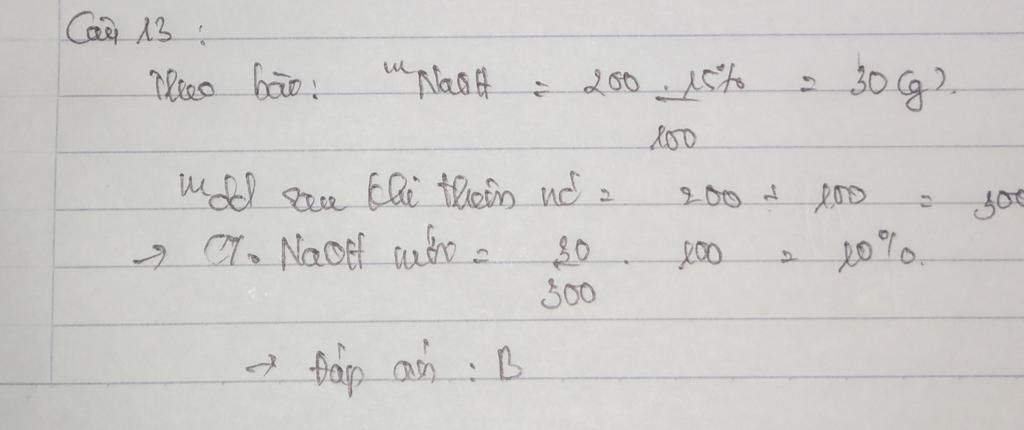 Câu 13 :
Theo bào : mNaOH = 200 . 15% = 30 (g).
100
mdd sau khi thêm nc = 200 + 100 = 300
→ C%. NaOH mới = 30 . 100 = 10%.
300
→ Đáp án : B